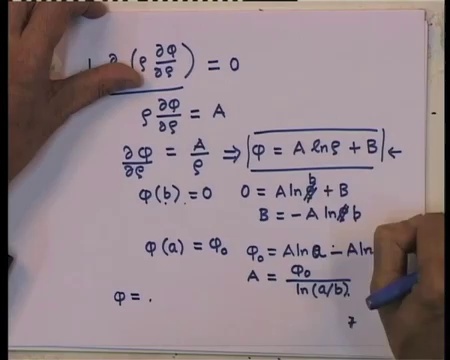 1 ∂ (ρ ∂φ/∂ρ) = 0
ρ ∂φ/∂ρ = A
∂φ/∂ρ = A/ρ ⇒ φ = A ln ρ + B ←
φ(b) = 0 0 = A ln b + B
B = - A ln b
φ(a) = φ₀ φ₀ = A ln a - A ln
A = φ₀/ln(a/b).
φ = .
7